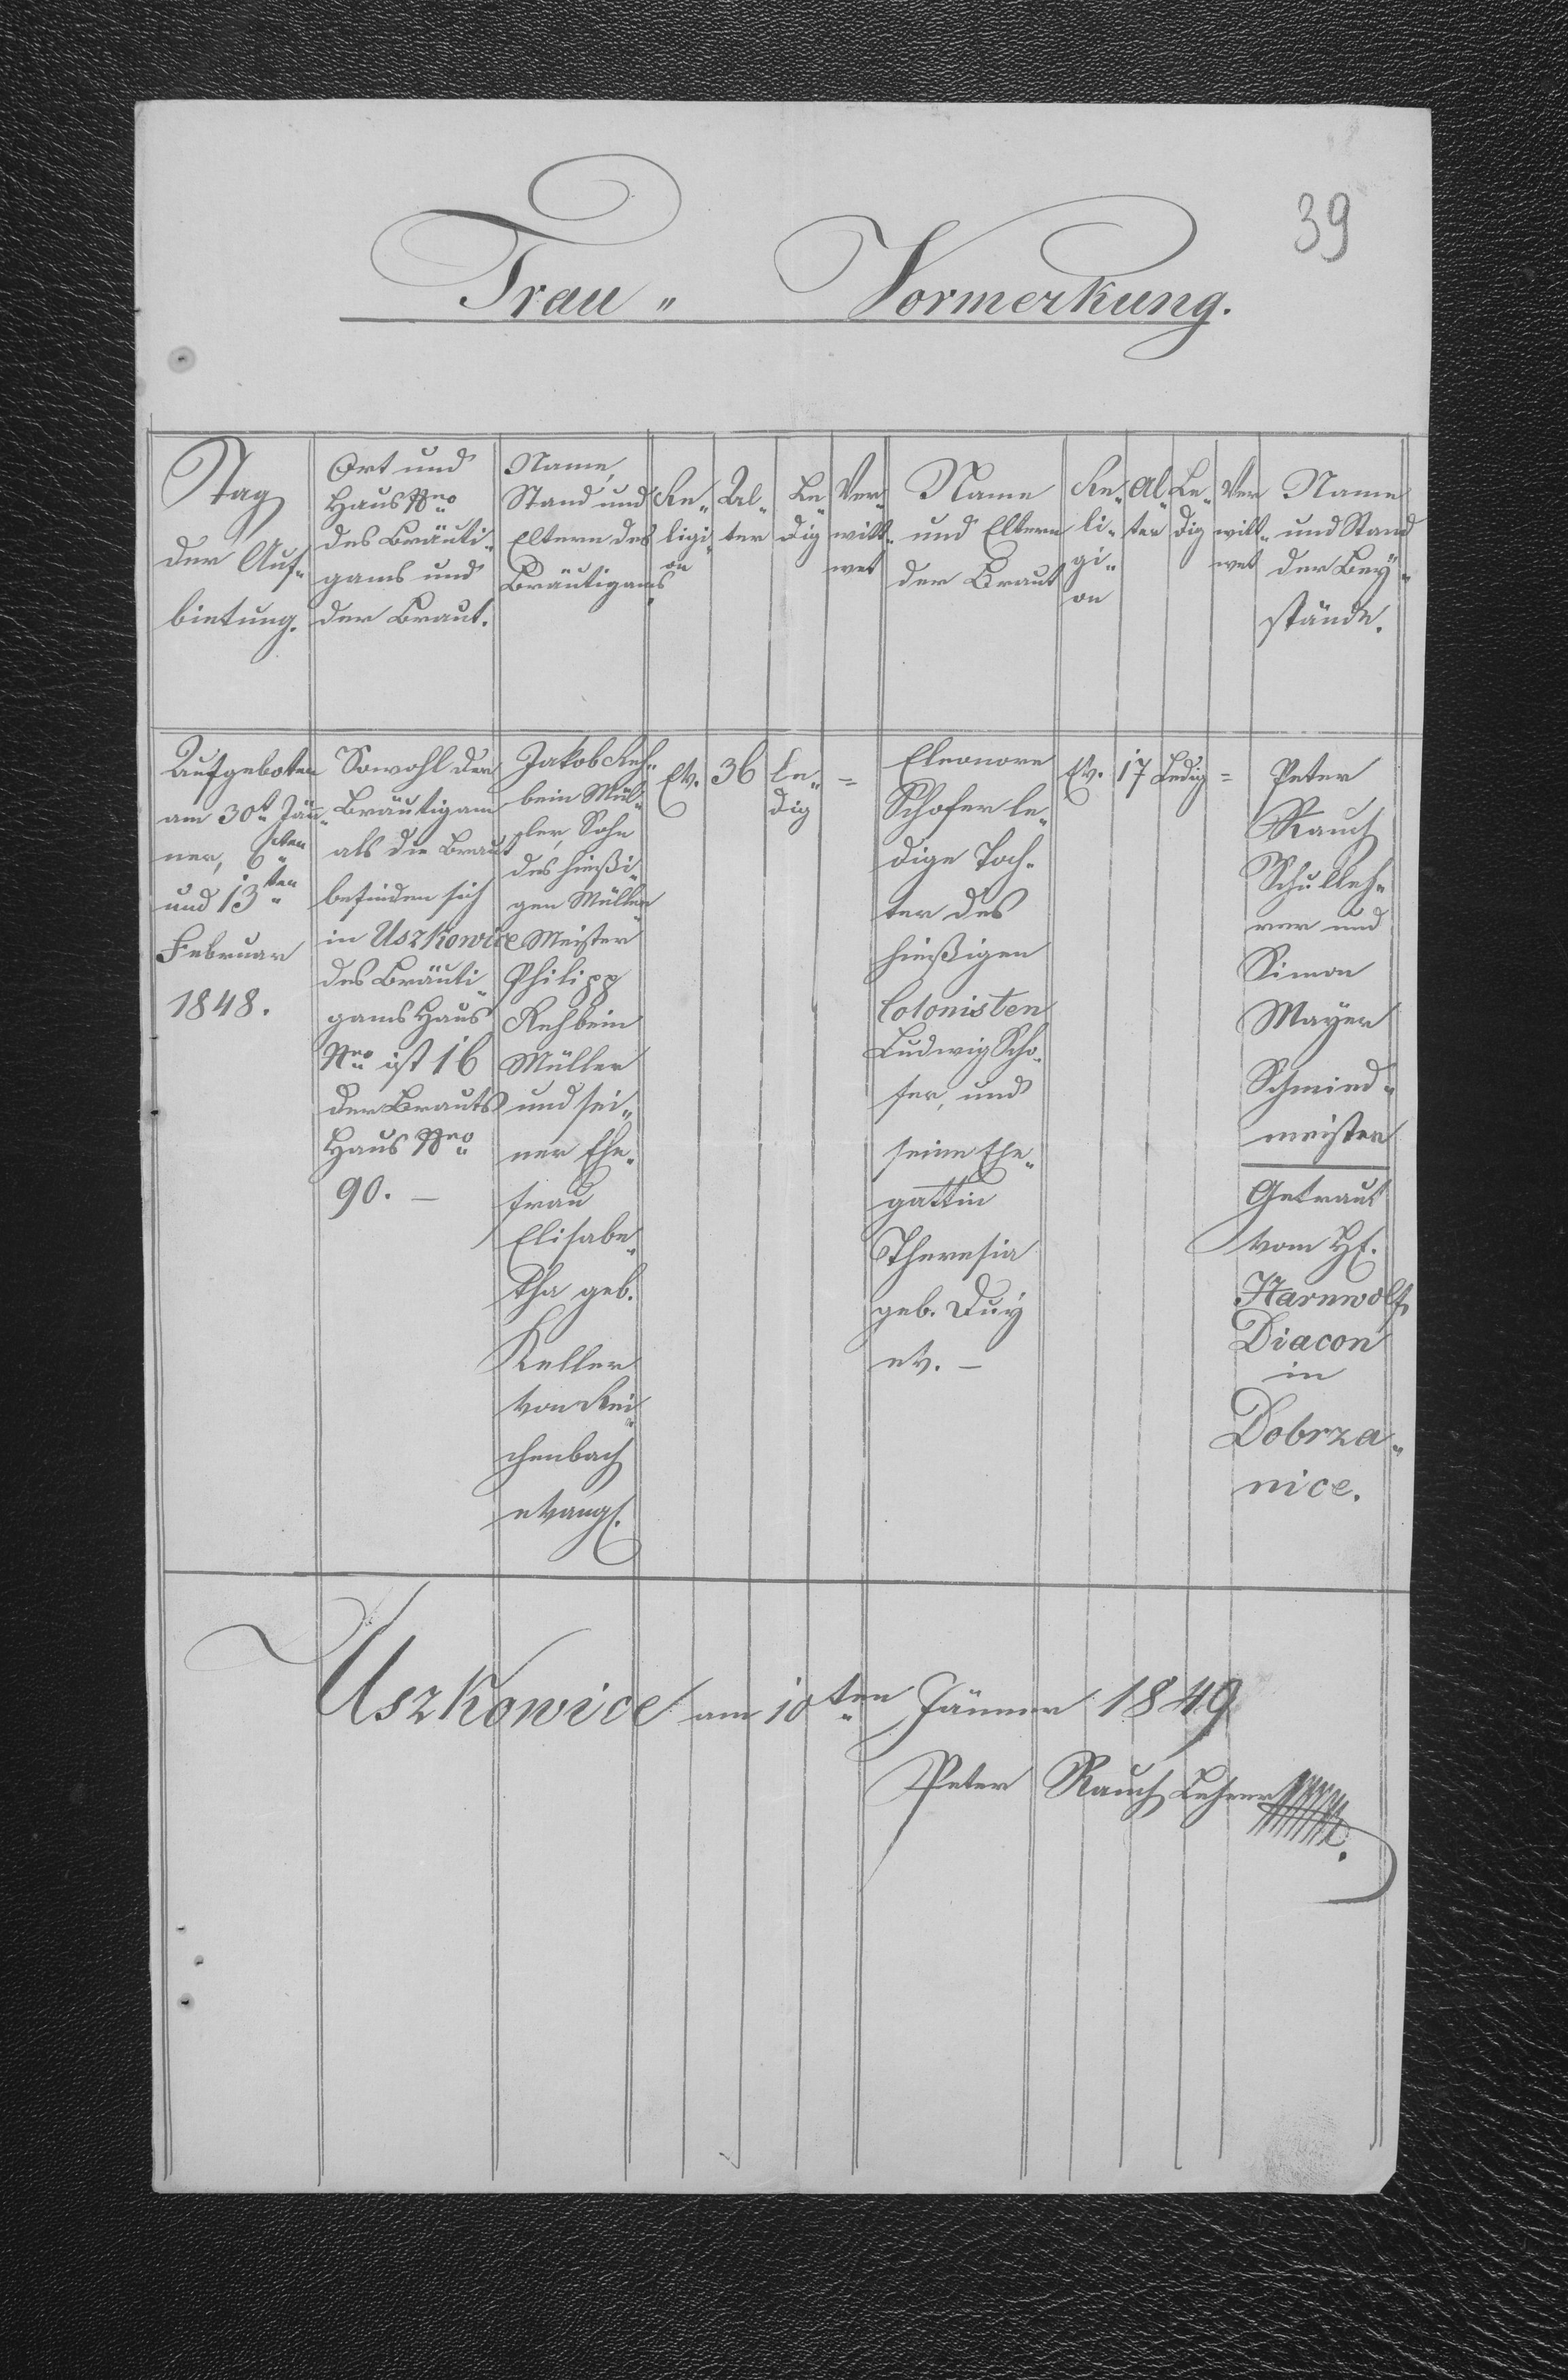 39
Trau„ Vormerkung.
Tag
der Auf„
bietung.
Ort und
Haus Nro
des Bräuti„
gams und
der Braut.
Name,
Stand und
Eltern des
Bräutigams
Re„
ligi„
on
Al„
ter
Le„
dig
Ver„
witt„
wet
Name
und Eltern
der Braut
Re„
li„
gi„
on
Al„
ter
Le„
dig
Ver
witt„
wet
Name
und Stand
der Bey„
stände.
Aufgeboten
am 30t Jän„
ner, 6ten
und 13ten
Februar
1848.
Sowohl der
Bräutigam
als die Braut
befinden sich
in Uszkowice
des Bräuti„
gams Haus
Nro ist 16
der Brauts
Haus Nro
90. —
Jakob Reh„
bein Mül„
ler, Sohn
des hießi„
gen Müller
Meister
Philipp
Rehbein
Müller
und sei„
ner Ehe„
frau
Elisabe„
tha geb.
Keller
von Rei„
chenbach
evangl.
Ev.
36
Le„
dig
=
Eleonore
Schofer le„
dige Toch„
ter des
hießigen
Colonisten
Ludwig Scho„
fer, und
seine Ehe„
gattin
Theresia
geb. Duy
ev. —
Ev.
17
Ledig
=
Peter
Rauch
Schulleh„
rer und
Simon
Mayer
Schmied„
meister
Getraut
vom H.
Harnwolf,
Diacon
in
Dobrza„
nice.
Uszkowice am 10ten Jänner 1849
Peter Rauch Lehrer